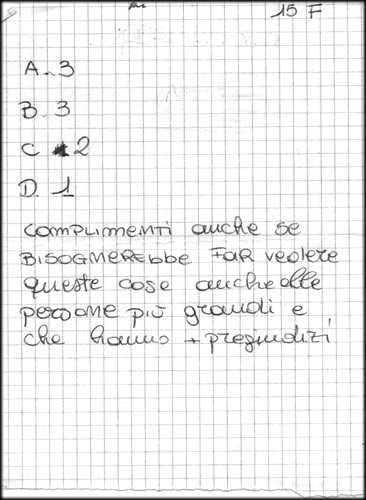 15 F
A. 3
B. 3
C 2
D. 1
COMPLIMENTI anche se
BISOGNEREbbe FAR vedere
queste cose anche alle
persone più grandi e
che hanno + pregiudizi